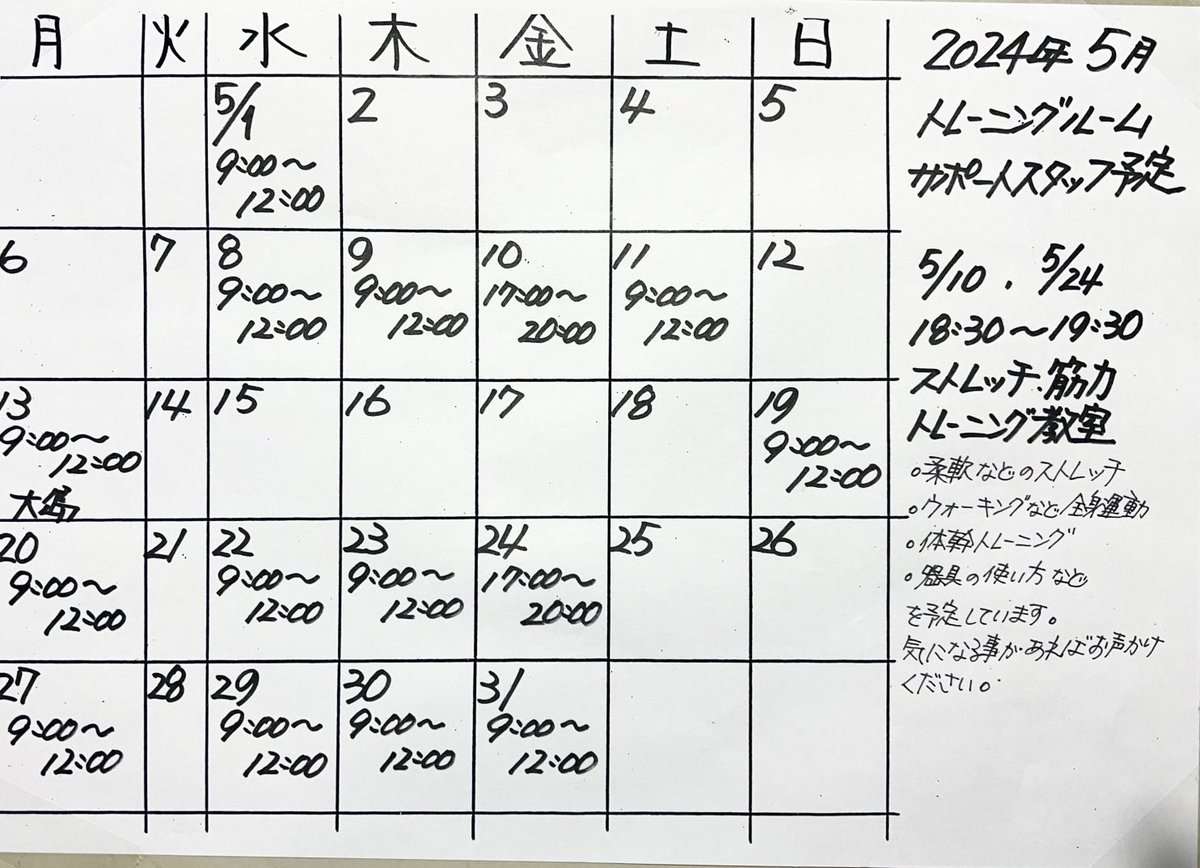 月 火 水 木 金 土 日
5/1 2 3 4 5
9:00～
12:00
6 7 8 9 10 11 12
9:00～ 9:00～ 17:00～ 9:00～
12:00 12:00 20:00 12:00
13 14 15 16 17 18 19
9:00～ 9:00～
12:00 12:00
大嶌
20 21 22 23 24 25 26
9:00～ 9:00～ 9:00～ 17:00～
12:00 12:00 12:00 20:00
27 28 29 30 31
9:00～ 9:00～ 9:00～ 9:00～
12:00 12:00 12:00 12:00
2024年 5月
トレーニングルーム
サポートスタッフ予定
5/10 . 5/24
18:30～19:30
ストレッチ.筋力
トレーニング教室
○柔軟などのストレッチ
○ウォーキングなど全身運動
○体幹トレーニング
○器具の使い方など
を予定しています。
気になる事があればお声かけ
ください。